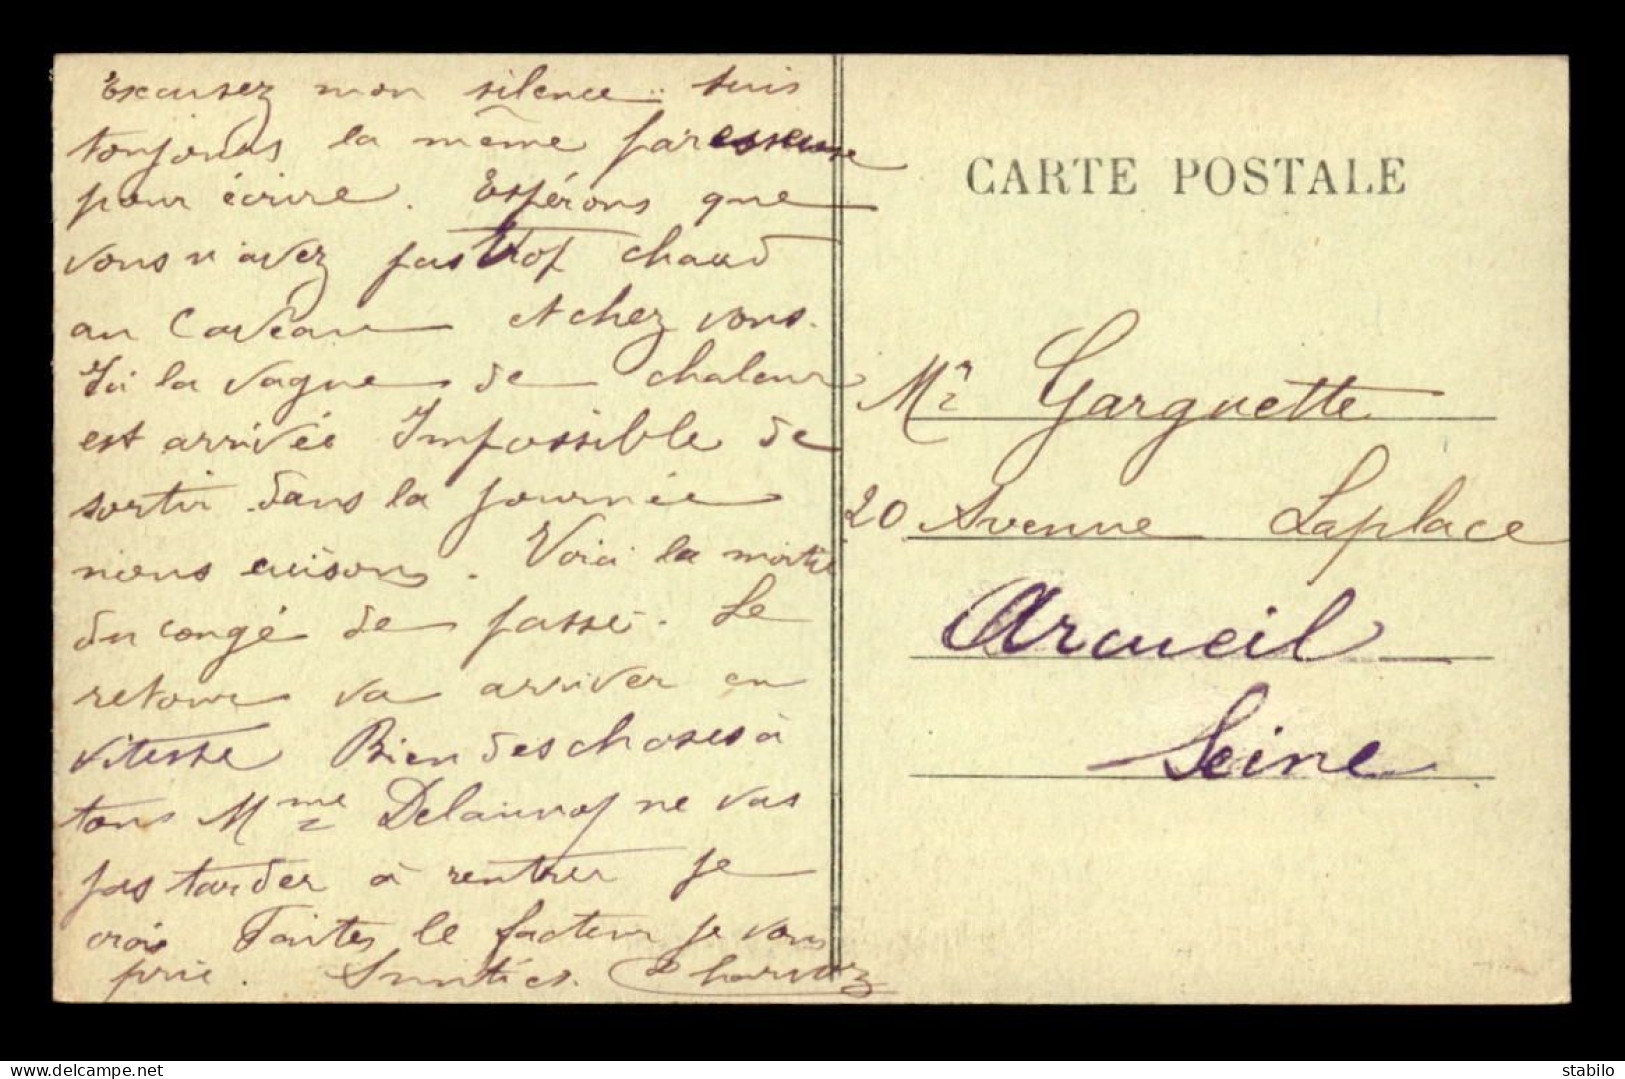 Excusez mon silence .. suis
toujours la même paresseuse
pour écrire. Espérons que
vous n'avez pas trop chaud
au Caveau et chez vous.
Ici la vague de chaleur
est arrivée Impossible de
sortir dans la journée
nous cuisons. Voici la moitié
du congé de passé. Le
retour va arriver en
vitesse Bien des choses à
tous Mme ne vas
pas tarder à rentrer je
crois Faites le facteur je vous
prie. Amitiés.
CARTE POSTALE
Mr Garguette
20 Avenue Laplace
Arcueil
Seine
delcampe.net
stabilo